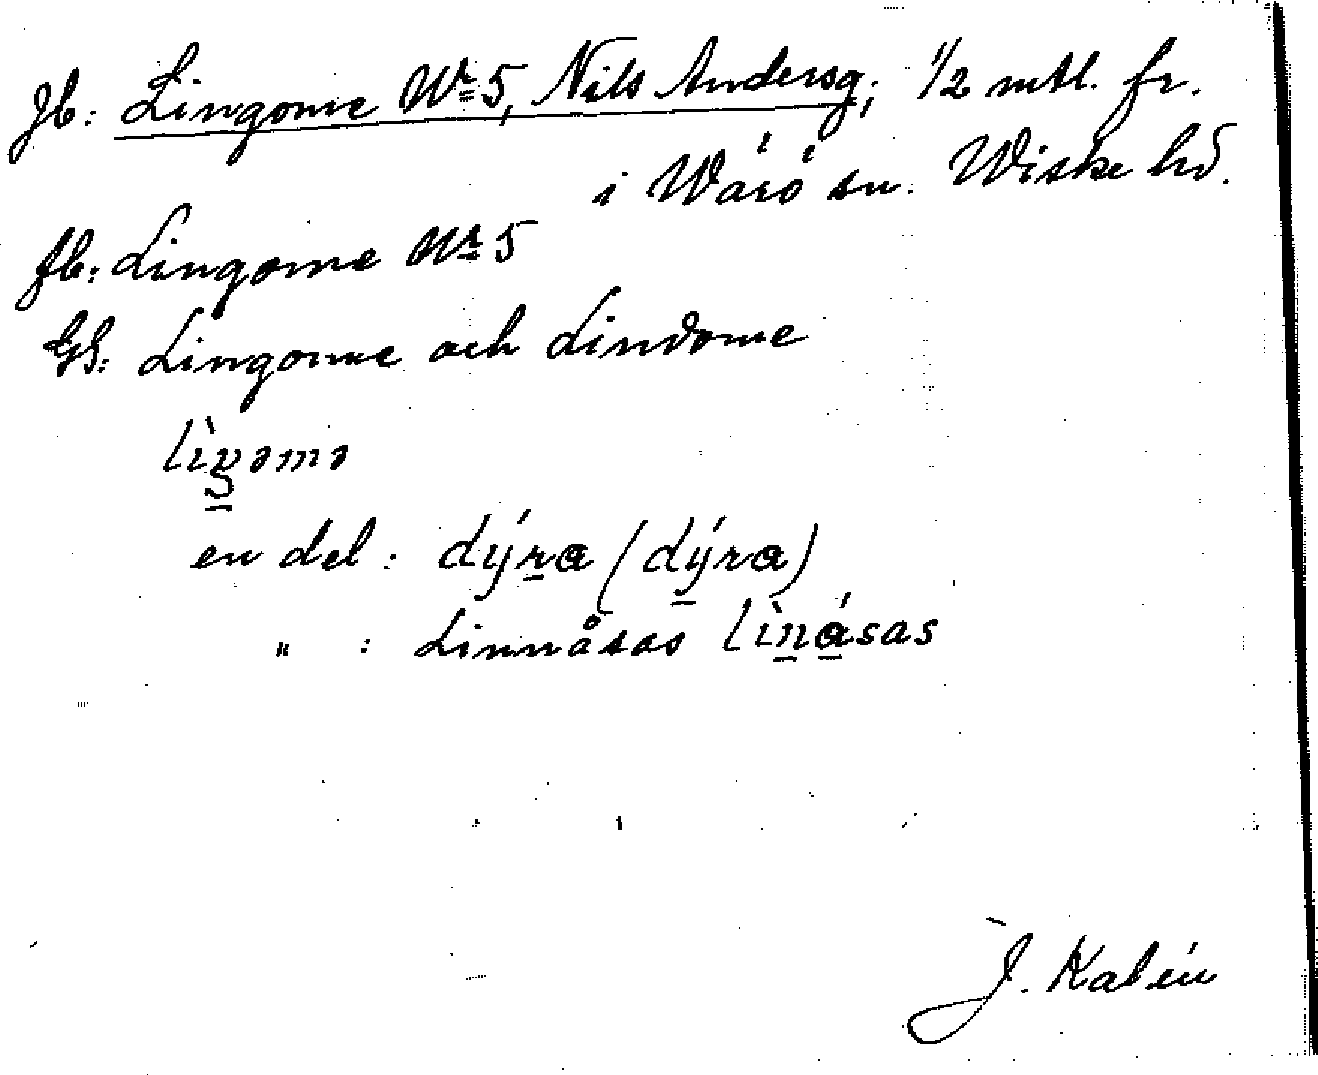 Jb: Lingome Nr 5, Nils Andersg; 1/2 mtl. fr.
i Wäró sn. Wiske hd.
fb: Lingome Nr 5
GS: Lingome och Lindome
lìŋəmə
en del: dýra (dýra)
" : Linnåsas lìnásas
J. Kalén